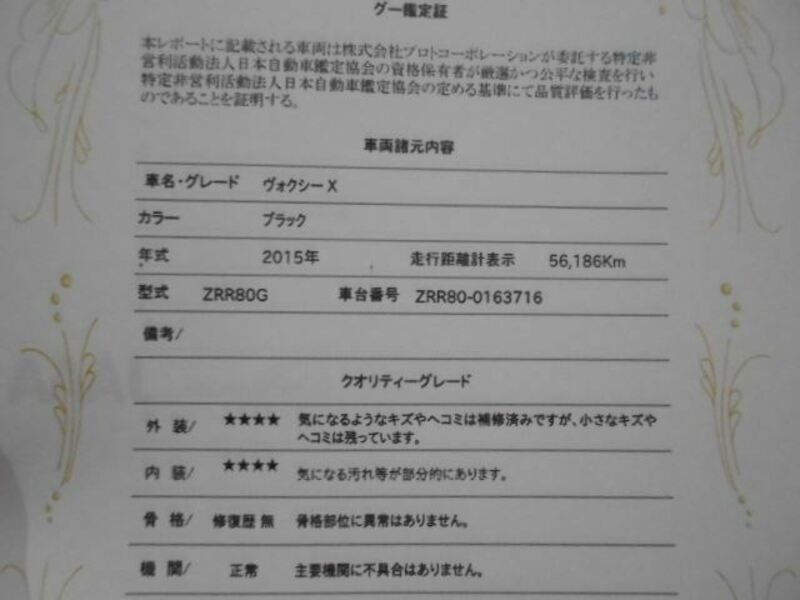 グー鑑定証
本レポートに記載される車両は株式会社プロトコーポレーションが委託する特定非
営利活動法人日本自動車鑑定協会の資格保有者が厳選かつ公平な検査を行い
特定非営利活動法人日本自動車鑑定協会の定める基準にて品質評価を行ったも
のであることを証明する。
車両諸元内容
車名・グレード ヴォクシー X
カラー ブラック
年式 2015年 走行距離計表示 56,186Km
型式 ZRR80G 車台番号 ZRR80-0163716
備考/
クオリティーグレード
外 装/ ★★★★ 気になるようなキズやヘコミは補修済みですが、小さなキズや
ヘコミは残っています。
内 装/ ★★★★ 気になる汚れ等が部分的にあります。
骨 格/ 修復歴 無 骨格部位に異常はありません。
機 関/ 正常 主要機関に不具合はありません。